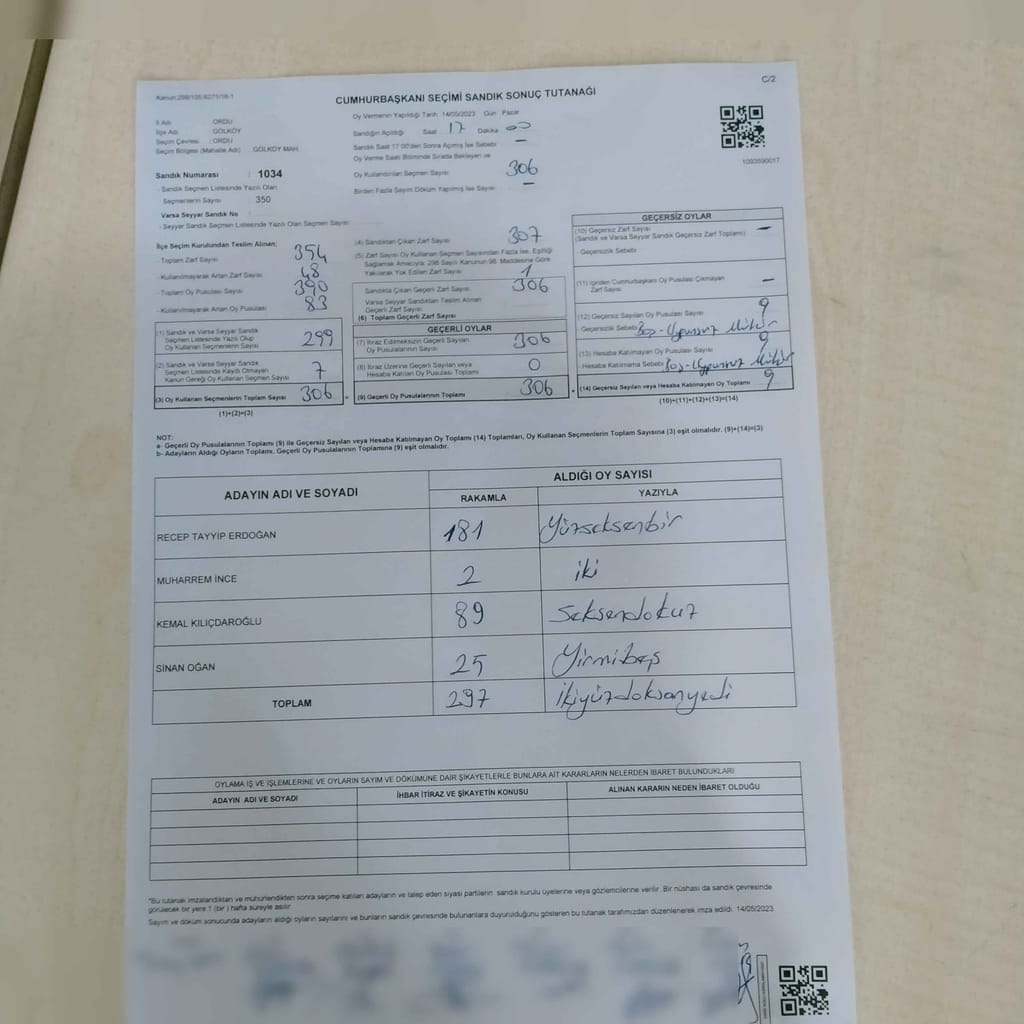 C/2
Kanun:298/105/6271/18-1
CUMHURBAŞKANI SEÇİMİ SANDIK SONUÇ TUTANAĞI
İl Adı ORDU
İlçe Adı GÖLKÖY
Seçim Çevresi : ORDU
Seçim Bölgesi (Mahalle Adı) GÖLKÖY MAH.
Sandık Numarası : 1034
- Sandık Seçmen Listesinde Yazılı Olan
Seçmenlerin Sayısı 350
Varsa Seyyar Sandık No
- Seyyar Sandık Seçmen Listesinde Yazılı Olan Seçmen Sayısı
Oy Vermenin Yapıldığı Tarih :14/05/2023 Gün Pazar
Sandığın Açıldığı Saat 17 Dakika 00
Sandık Saat 17:00'den Sonra Açılmış İse Sebebi —
Oy Verme Saati Bitiminde Sırada Bekleyen ve
Oy Kullandırılan Seçmen Sayısı 306
Birden Fazla Sayım Döküm Yapılmış İse Sayısı —
1093590017
İlçe Seçim Kurulundan Teslim Alınan;
- Toplam Zarf Sayısı 354
- Kullanılmayarak Artan Zarf Sayısı 48
- Toplam Oy Pusulası Sayısı 390
- Kullanılmayarak Artan Oy Pusulası 83
(1) Sandık ve Varsa Seyyar Sandık
Seçmen Listesinde Yazılı Olup
Oy Kullanan Seçmenlerin Sayısı 299
(2) Sandık ve Varsa Seyyar Sandık
Seçmen Listesinde Kaydı Olmayan
Kanun Gereği Oy Kullanan Seçmen Sayısı 7
(3) Oy Kullanan Seçmenlerin Toplam Sayısı 306
(1)+(2)=(3)
(4) Sandıktan Çıkan Zarf Sayısı 307
(5) Zarf Sayısı Oy Kullanan Seçmen Sayısından Fazla İse, Eşitliği
Sağlamak Amacıyla; 298 Sayılı Kanunun 98. Maddesine Göre
Yakılarak Yok Edilen Zarf Sayısı 1
Sandıkta Çıkan Geçerli Zarf Sayısı 306
Varsa Seyyar Sandıktan Teslim Alınan
Geçerli Zarf Sayısı
(6) Toplam Geçerli Zarf Sayısı
GEÇERLİ OYLAR
(7) İtiraz Edilmeksizin Geçerli Sayılan
Oy Pusulalarının Sayısı 306
(8) İtiraz Üzerine Geçerli Sayılan veya
Hesaba Katılan Oy Pusulası Toplamı 0
(9) Geçerli Oy Pusulalarının Toplamı 306
GEÇERSİZ OYLAR
(10) Geçersiz Zarf Sayısı —
(Sandık ve Varsa Seyyar Sandık Geçersiz Zarf Toplamı)
- Geçersizlik Sebebi
(11) İçinden Cumhurbaşkanı Oy Pusulası Çıkmayan
Zarf Sayısı —
(12) Geçersiz Sayılan Oy Pusulası Sayısı 9
- Geçersizlik Sebebi Boş-Uygunsuz Mühür
(13) Hesaba Katılmayan Oy Pusulası Sayısı 9
- Hesaba Katılmama Sebebi Boş-Uygunsuz Mühür
(14) Geçersiz Sayılan veya Hesaba Katılmayan Oy Toplamı 9
(10)+(11)+(12)+(13)=(14)
NOT:
a- Geçerli Oy Pusulalarının Toplamı (9) ile Geçersiz Sayılan veya Hesaba Katılmayan Oy Toplamı (14) Toplamları, Oy Kullanan Seçmenlerin Toplam Sayısına (3) eşit olmalıdır. (9)+(14)=(3)
b- Adayların Aldığı Oyların Toplamı, Geçerli Oy Pusulalarının Toplamına (9) eşit olmalıdır.
ADAYIN ADI VE SOYADI
ALDIĞI OY SAYISI
RAKAMLA YAZIYLA
RECEP TAYYİP ERDOĞAN 181 Yüzseksenbir
MUHARREM İNCE 2 iki
KEMAL KILIÇDAROĞLU 89 Seksendokuz
SİNAN OĞAN 25 Yirmibeş
TOPLAM 297 ikiyüzdoksanyedi
OYLAMA İŞ VE İŞLEMLERİNE VE OYLARIN SAYIM VE DÖKÜMÜNE DAİR ŞİKAYETLERLE BUNLARA AİT KARARLARIN NELERDEN İBARET BULUNDUKLARI
ADAYIN ADI VE SOYADI İHBAR İTİRAZ VE ŞİKAYETİN KONUSU ALINAN KARARIN NEDEN İBARET OLDUĞU
*Bu tutanak imzalandıktan ve mühürlendikten sonra seçime katılan adayların ve talep eden siyasi partilerin sandık kurulu üyelerine veya gözlemcilerine verilir. Bir nüshası da sandık çevresinde
görülecek bir yere 1 (bir) hafta süreyle asılır.
Sayım ve döküm sonucunda adayların aldığı oyların sayılarını ve bunların sandık çevresinde bulunanlara duyurulduğunu gösteren bu tutanak tarafımızdan düzenlenerek imza edildi. 14/05/2023